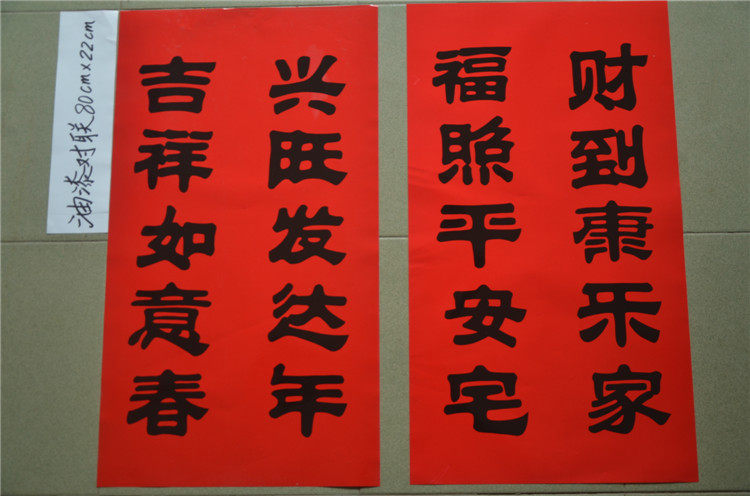 油漆对联80cm×22cm
吉祥如意春
兴旺发达年
福照平安宅
财到康乐家